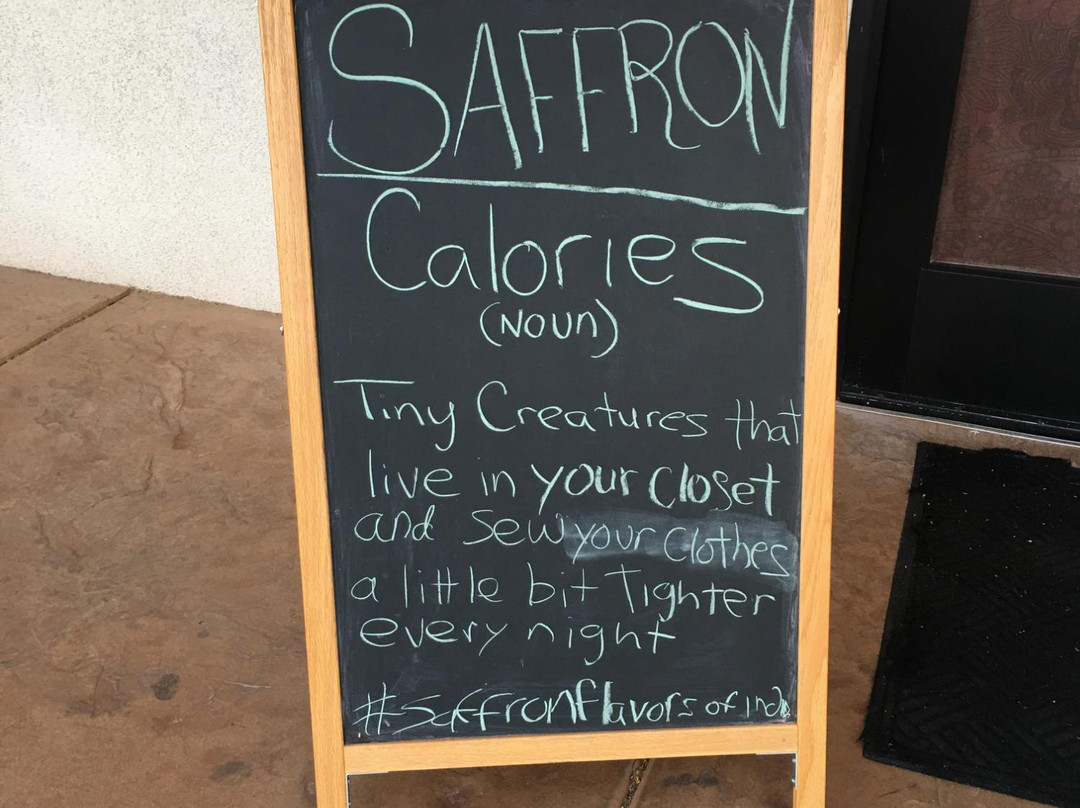 SAFFRON
Calories
(NOUN)
Tiny Creatures that
live in your closet
and sew your clothes
a little bit Tighter
every night
#saffronflavorsof